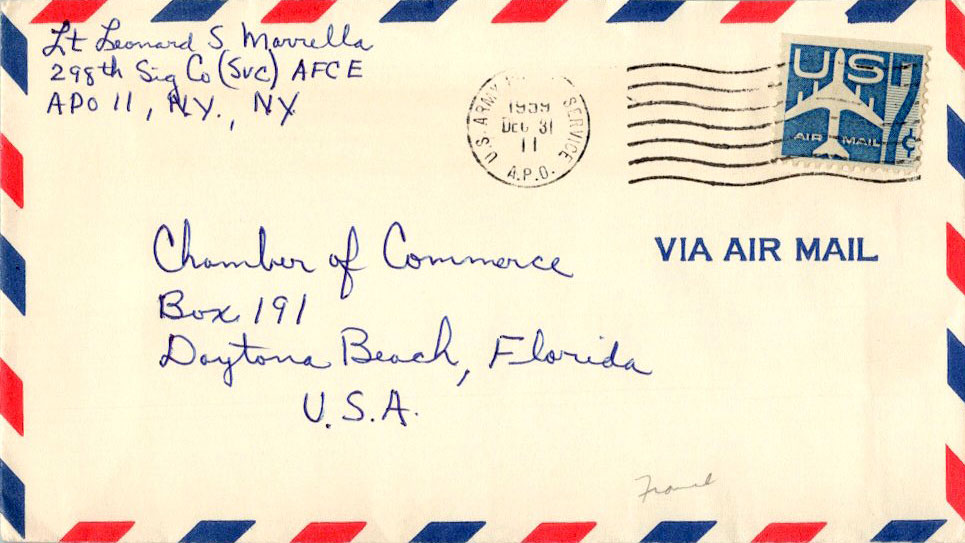 Lt Leonard S. Marrella
298th Sig Co (Svc) AFCE
APO 11, N.Y., N.Y.
U.S. ARMY SERVICE
1959
DEC 31
11
A.P.O.
US
7¢
AIR MAIL
VIA AIR MAIL
Chamber of Commerce
Box 191
Daytona Beach, Florida
U.S.A.